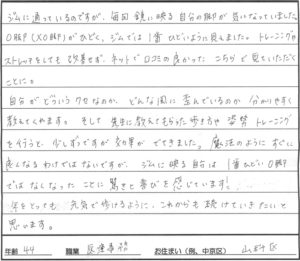 ジムに通っているのですが、毎回鏡に映る自分の脚が気になっていました。
O脚(XO脚)がひどく、ジムでは1番ひどいように見えました。トレーニングや
ストレッチをしても改善せず、ネットで口コミの良かったこちらで見ていただく
ことに。
自分がどういうクセなのか、どんな風に歪んでいるのか分かりやすく
教えてくれます。そして先生に教えてもらった歩き方や姿勢トレーニング
を行うと、少しずつですが効果がでてきました。魔法のようにすぐに
良くなるわけではないですが、ジムに映る自分は1番ひどいO脚
ではなくなったことに驚きと喜びを感じています!
年をとっても元気で歩けるように、これからも続けていきたいと
思います。
年齢 44 職業 医療事務 お住まい(例、中京区) 山科区